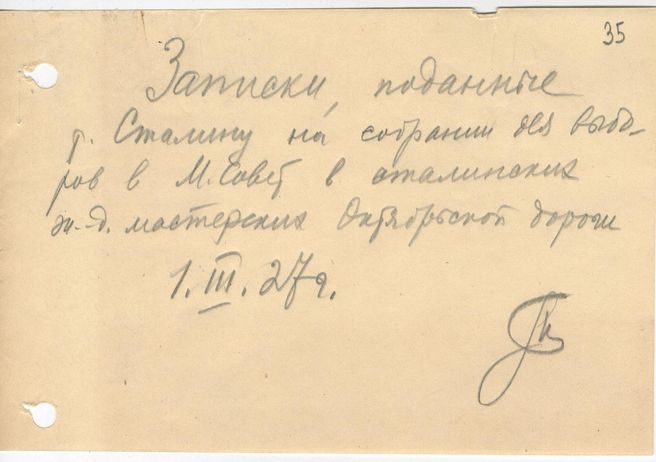 35
Записки, поданные
т. Сталину на собрании для выбо-
ров в М. Совет в сталинских
ж.-д. мастерских Октябрьской дороги
1.III.27г.